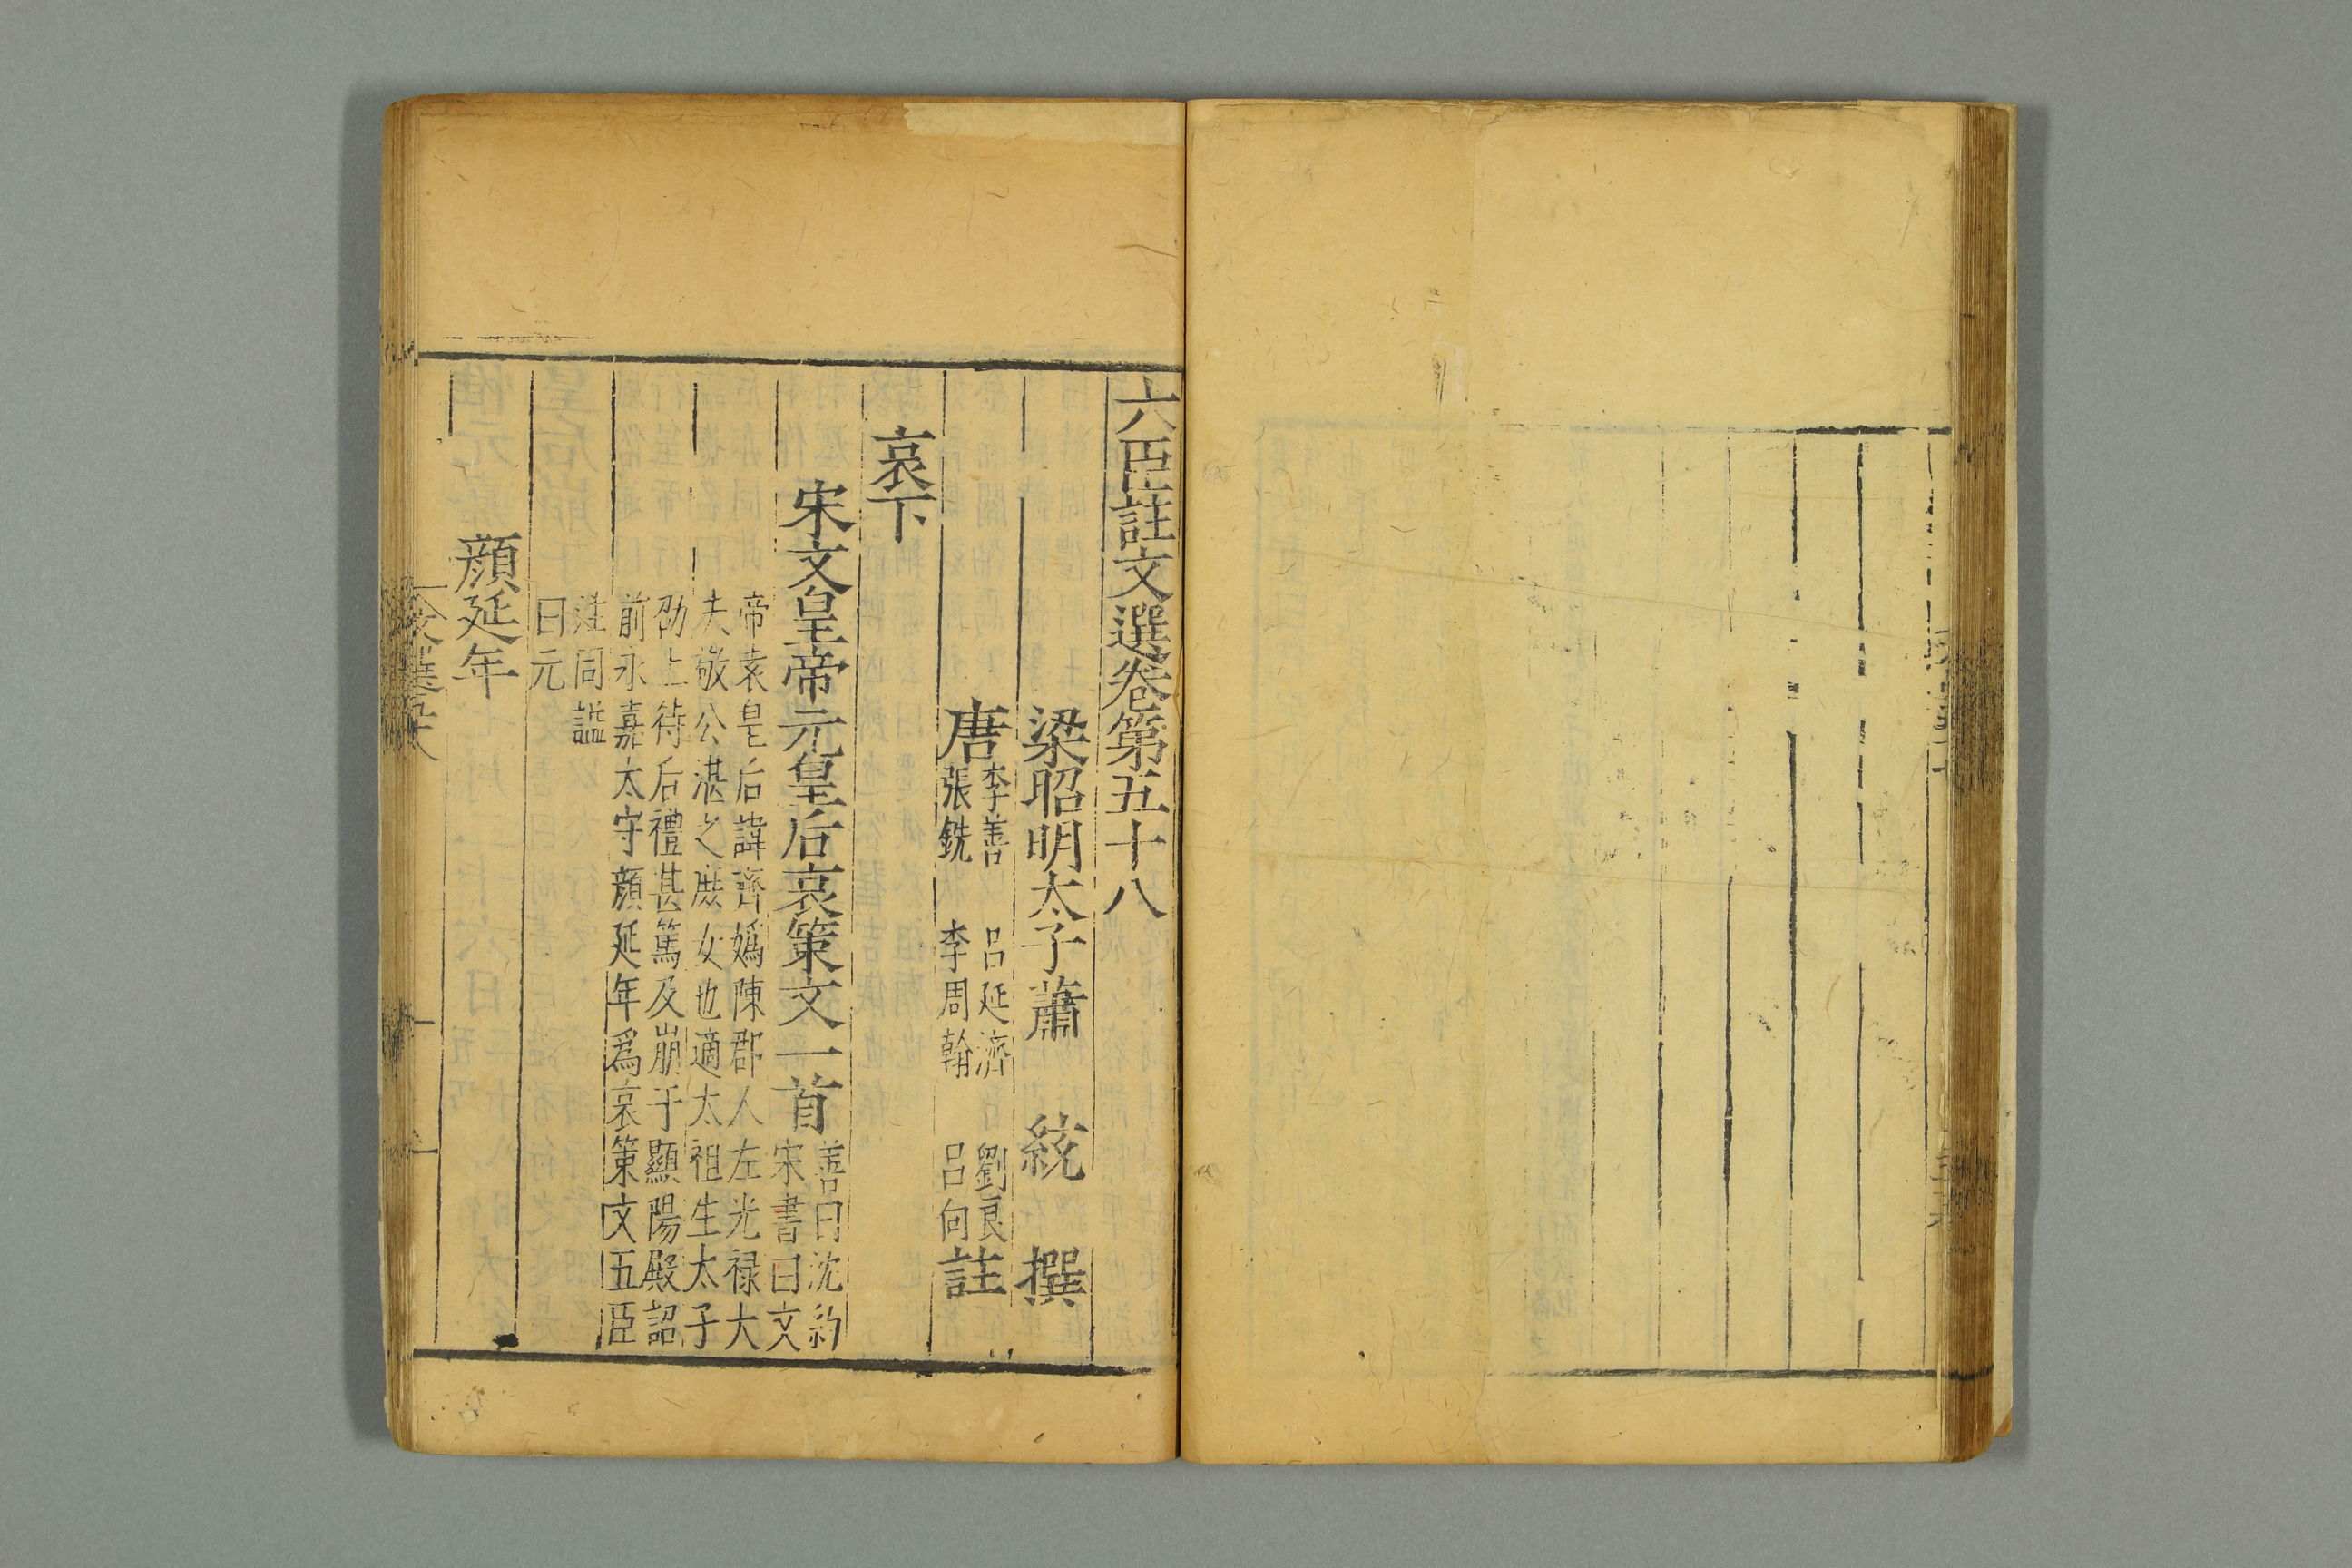 六臣註文選卷第五十八
梁昭明太子蕭 統 撰
唐 李善 呂延濟 劉良
張銑 李周翰 呂向 註
哀下
宋文皇帝元皇后哀策文一首 善曰沈約
宋書曰文
帝袁皇后諱齊媯陳郡人左光禄大
夫敬公湛之庶女也適太祖生太子
劭上待后禮甚篤及崩于顯陽殿詔
前永嘉太守顔延年爲哀策文五臣
注同謚
曰元
顔延年